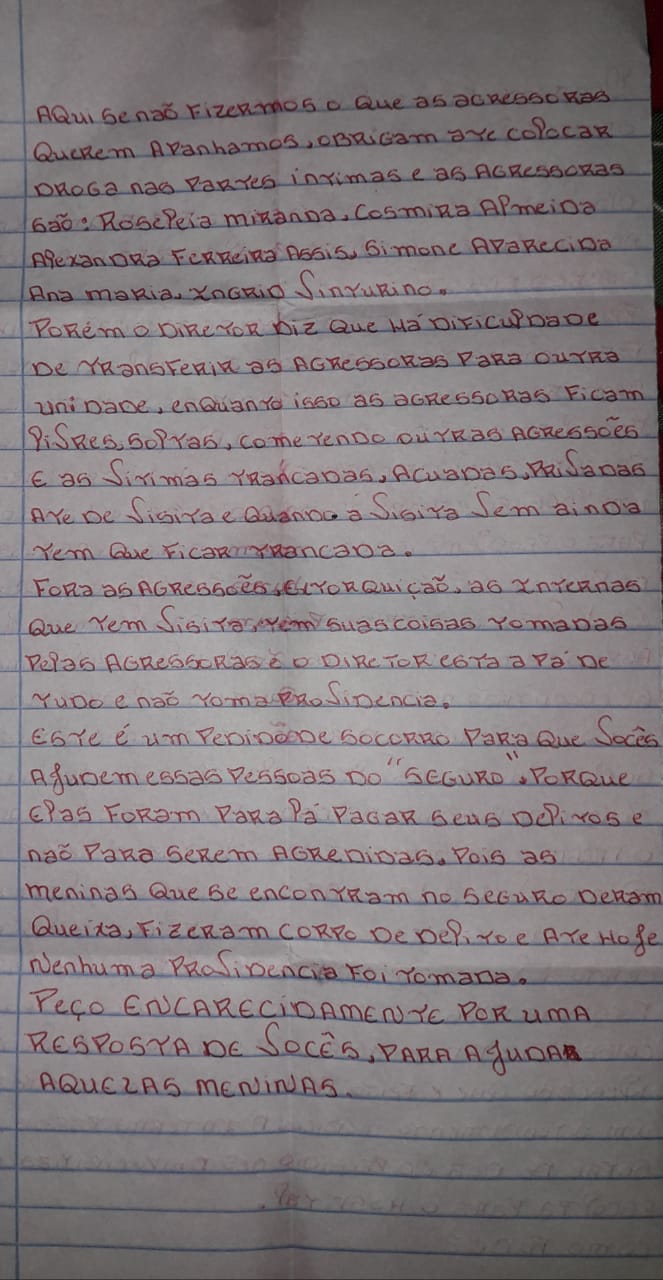 AQui se não Fizermos o Que as agressoras
Querem Apanhamos, obrigam ate colocar
Droga nas Partes intimas e as Agressoras
são: Roseleia miranda, Cosmira Almeida
Alexandra Ferreira Assis, Simone Aparecida
Ana maria, Ingrid Vinturino.
Porém o Diretor Diz Que Há Dificuldade
De Transferir as Agressoras Para outra
unidade, enquanto isso as agressoras Ficam
Livres, soltas, cometendo outras Agressões
E as Vitimas Trancadas, Acuadas, Privadas
Ate De Visita e Quando a Visita Vem ainda
Tem Que Ficar Trancada.
Fora as Agressões, Extorquição, as Internas
Que Tem Visita, tem suas coisas Tomadas
Pelas Agressoras e o Diretor esta a Pá de
Tudo e não Toma Providencia.
Este é um Pedido de socorro Para Que Vocês
Ajudem essas Pessoas Do "Seguro", Porque
Elas Foram Para lá Pagar seus Delitos e
não Para serem Agredidas, Pois as
meninas Que se encontram no Seguro Deram
Queixa, Fizeram corpo De Delito e Ate Hoje
Nenhuma Providencia Foi Tomada.
Peço Encarecidamente Por uma
Resposta de Vocês, Para Ajudar
Aquelas meninas.